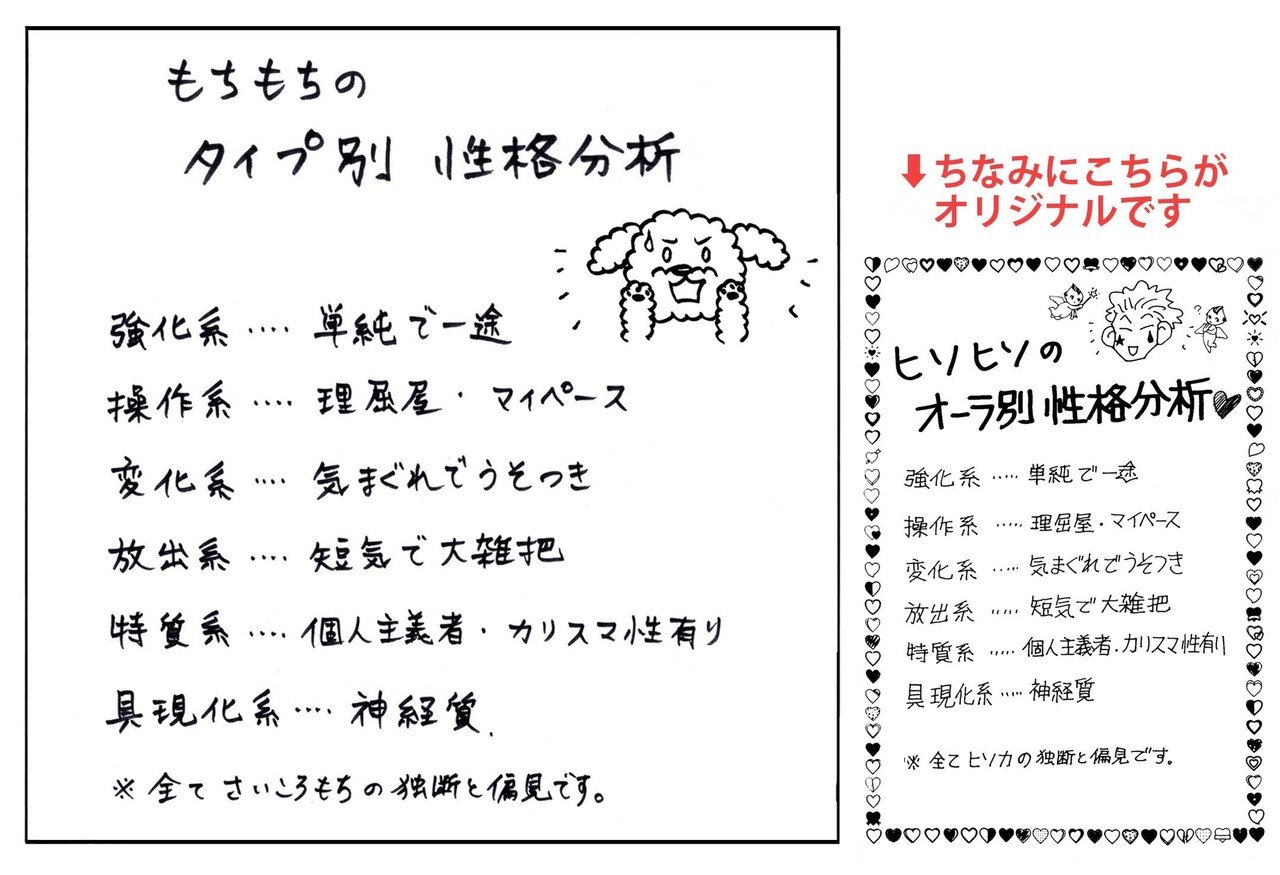 もちもちの
タイプ別 性格分析
強化系 ‥‥ 単純で一途
操作系 ‥‥ 理屈屋・マイペース
変化系 ‥‥ 気まぐれでうそつき
放出系 ‥‥ 短気で大雑把
特質系 ‥‥ 個人主義者・カリスマ性有り
具現化系 ‥‥ 神経質
※ 全てさいころもちの独断と偏見です。
⬇ちなみにこちらが
オリジナルです
ヒソヒソの
オーラ別性格分析♥
強化系 ‥‥‥ 単純で一途
操作系 ‥‥‥ 理屈屋・マイペース
変化系 ‥‥‥ 気まぐれでうそつき
放出系 ‥‥‥ 短気で大雑把
特質系 ‥‥‥ 個人主義者・カリスマ性有り
具現化系 ‥‥‥ 神経質
※ 全てヒソカの独断と偏見です。